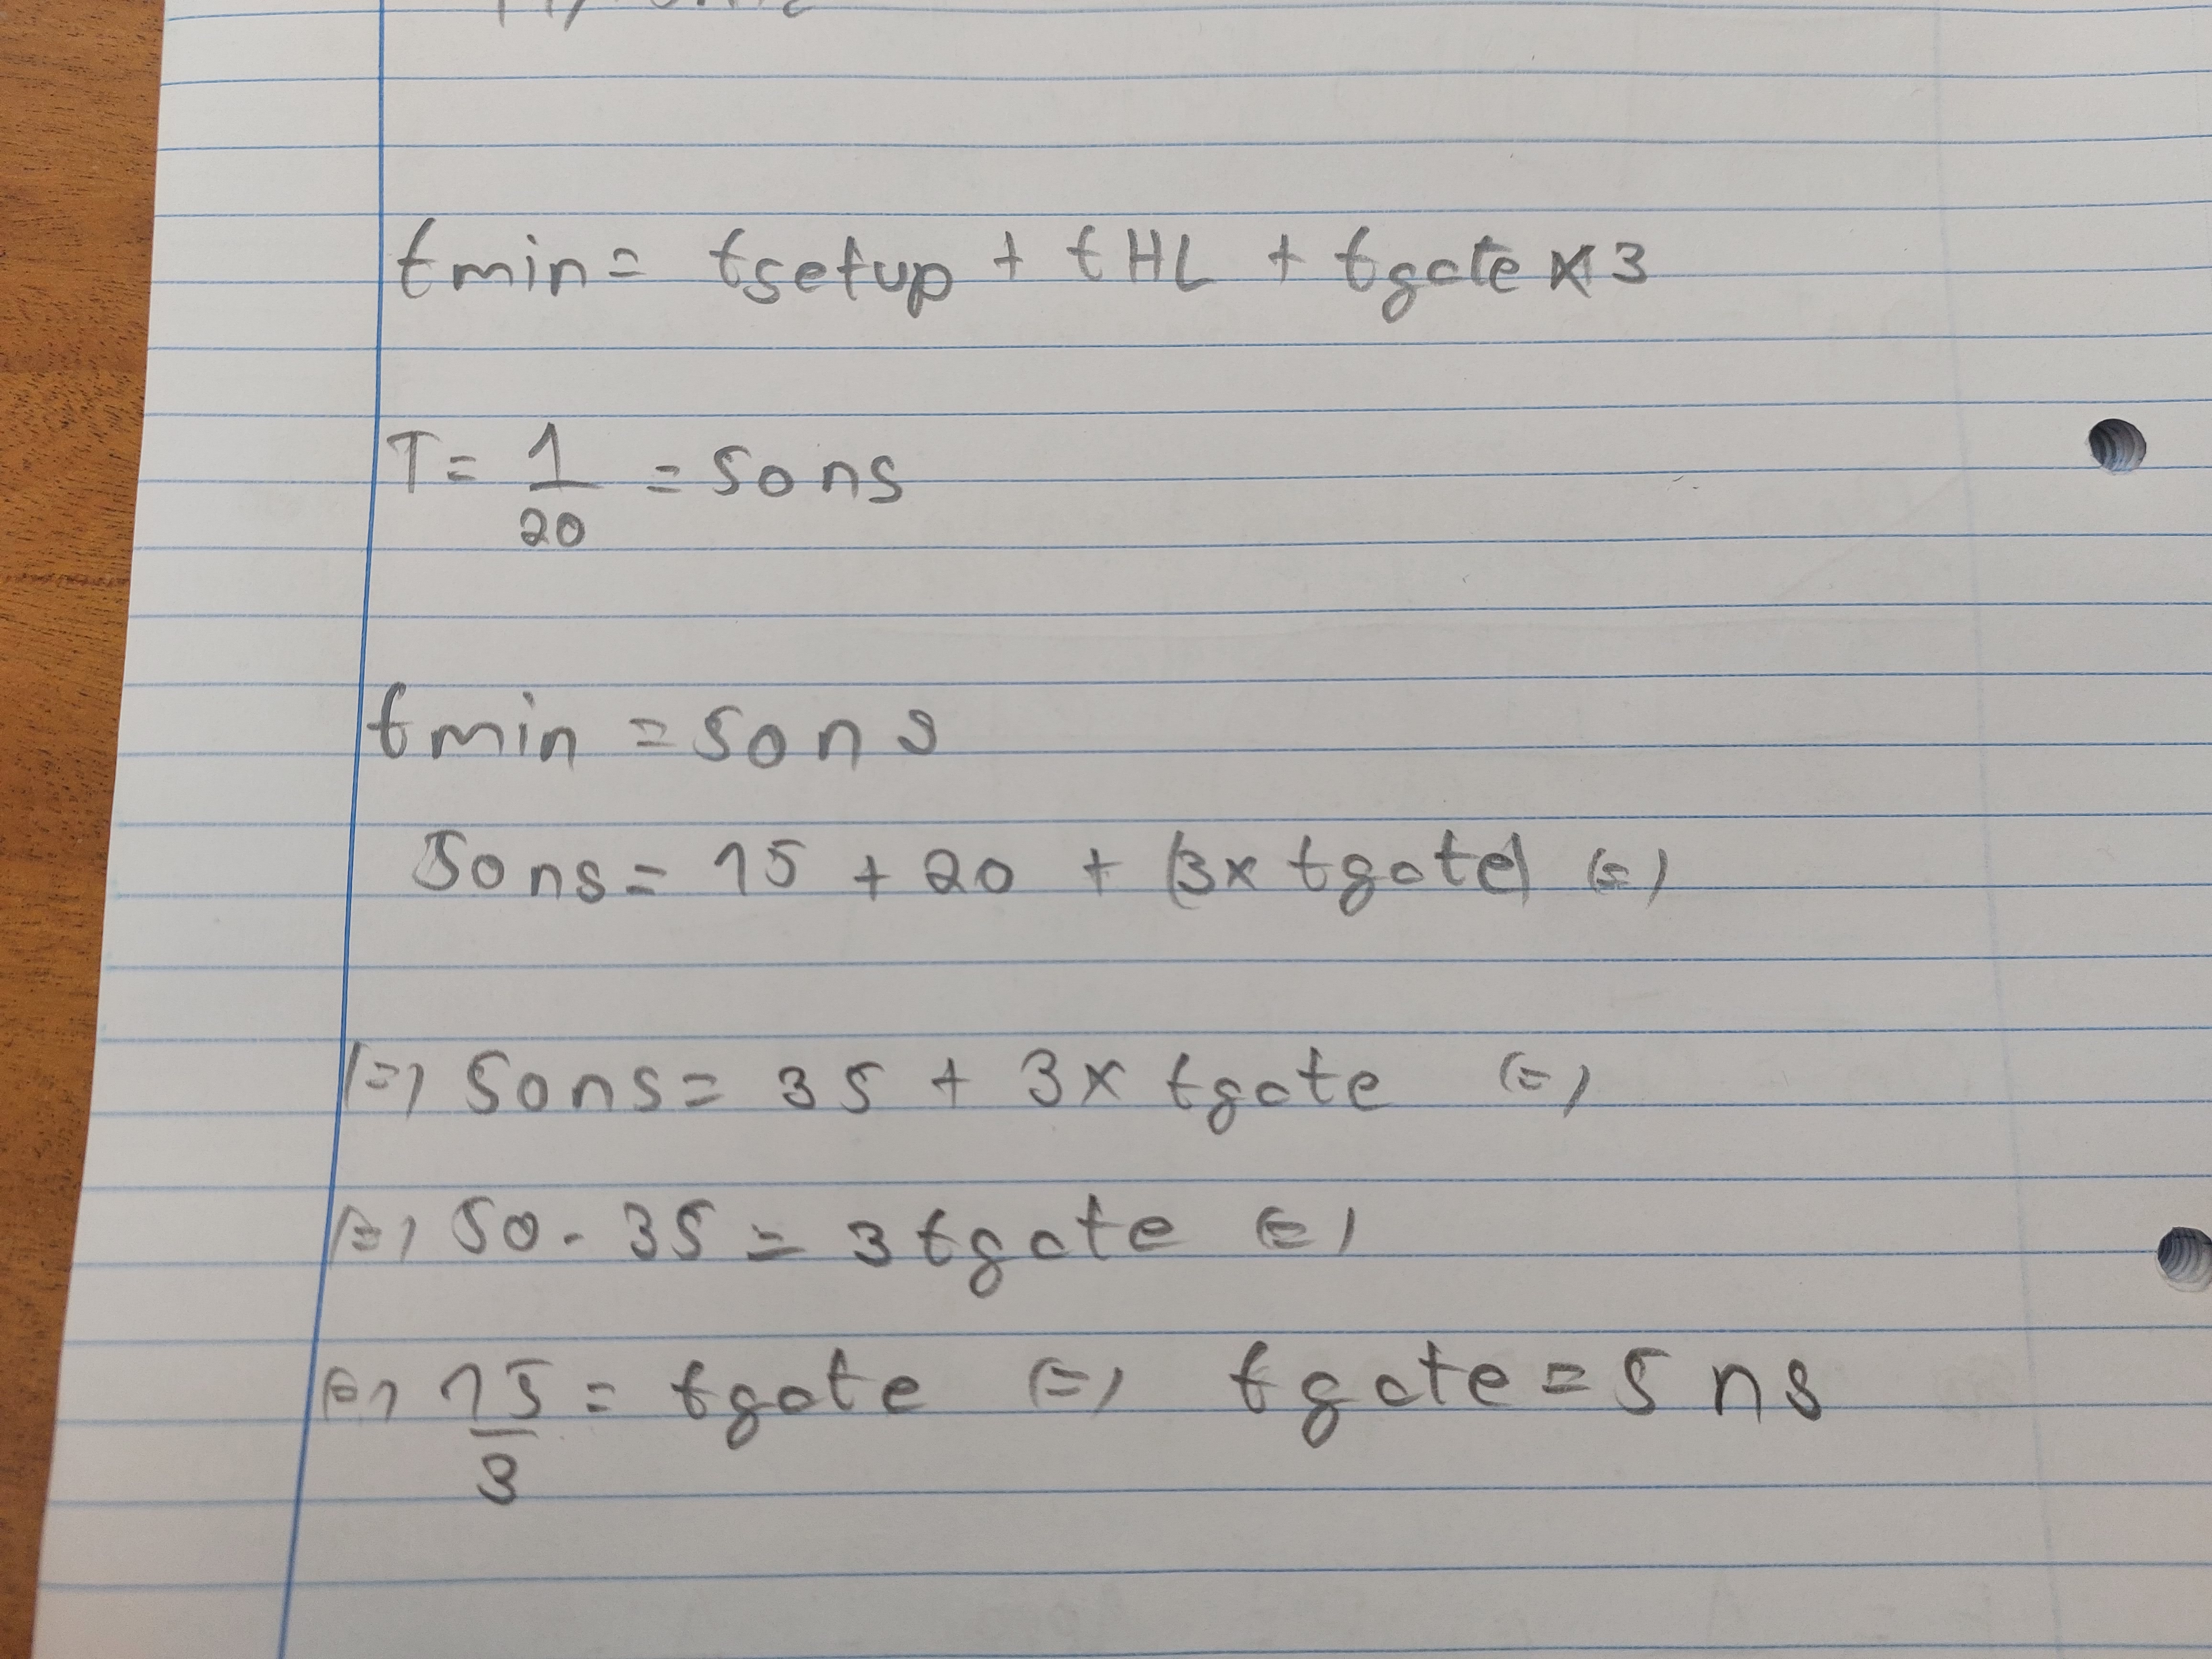 tmin = tsetup + tHL + tgate x3
T = 1/20 = 50ns
tmin = 50ns
50ns = 15 + 20 + (3x tgate) (=)
(=) 50ns = 35 + 3x tgate (=)
(=) 50 - 35 = 3 tgate (=)
(=) 15/3 = tgate (=) tgate = 5 ns